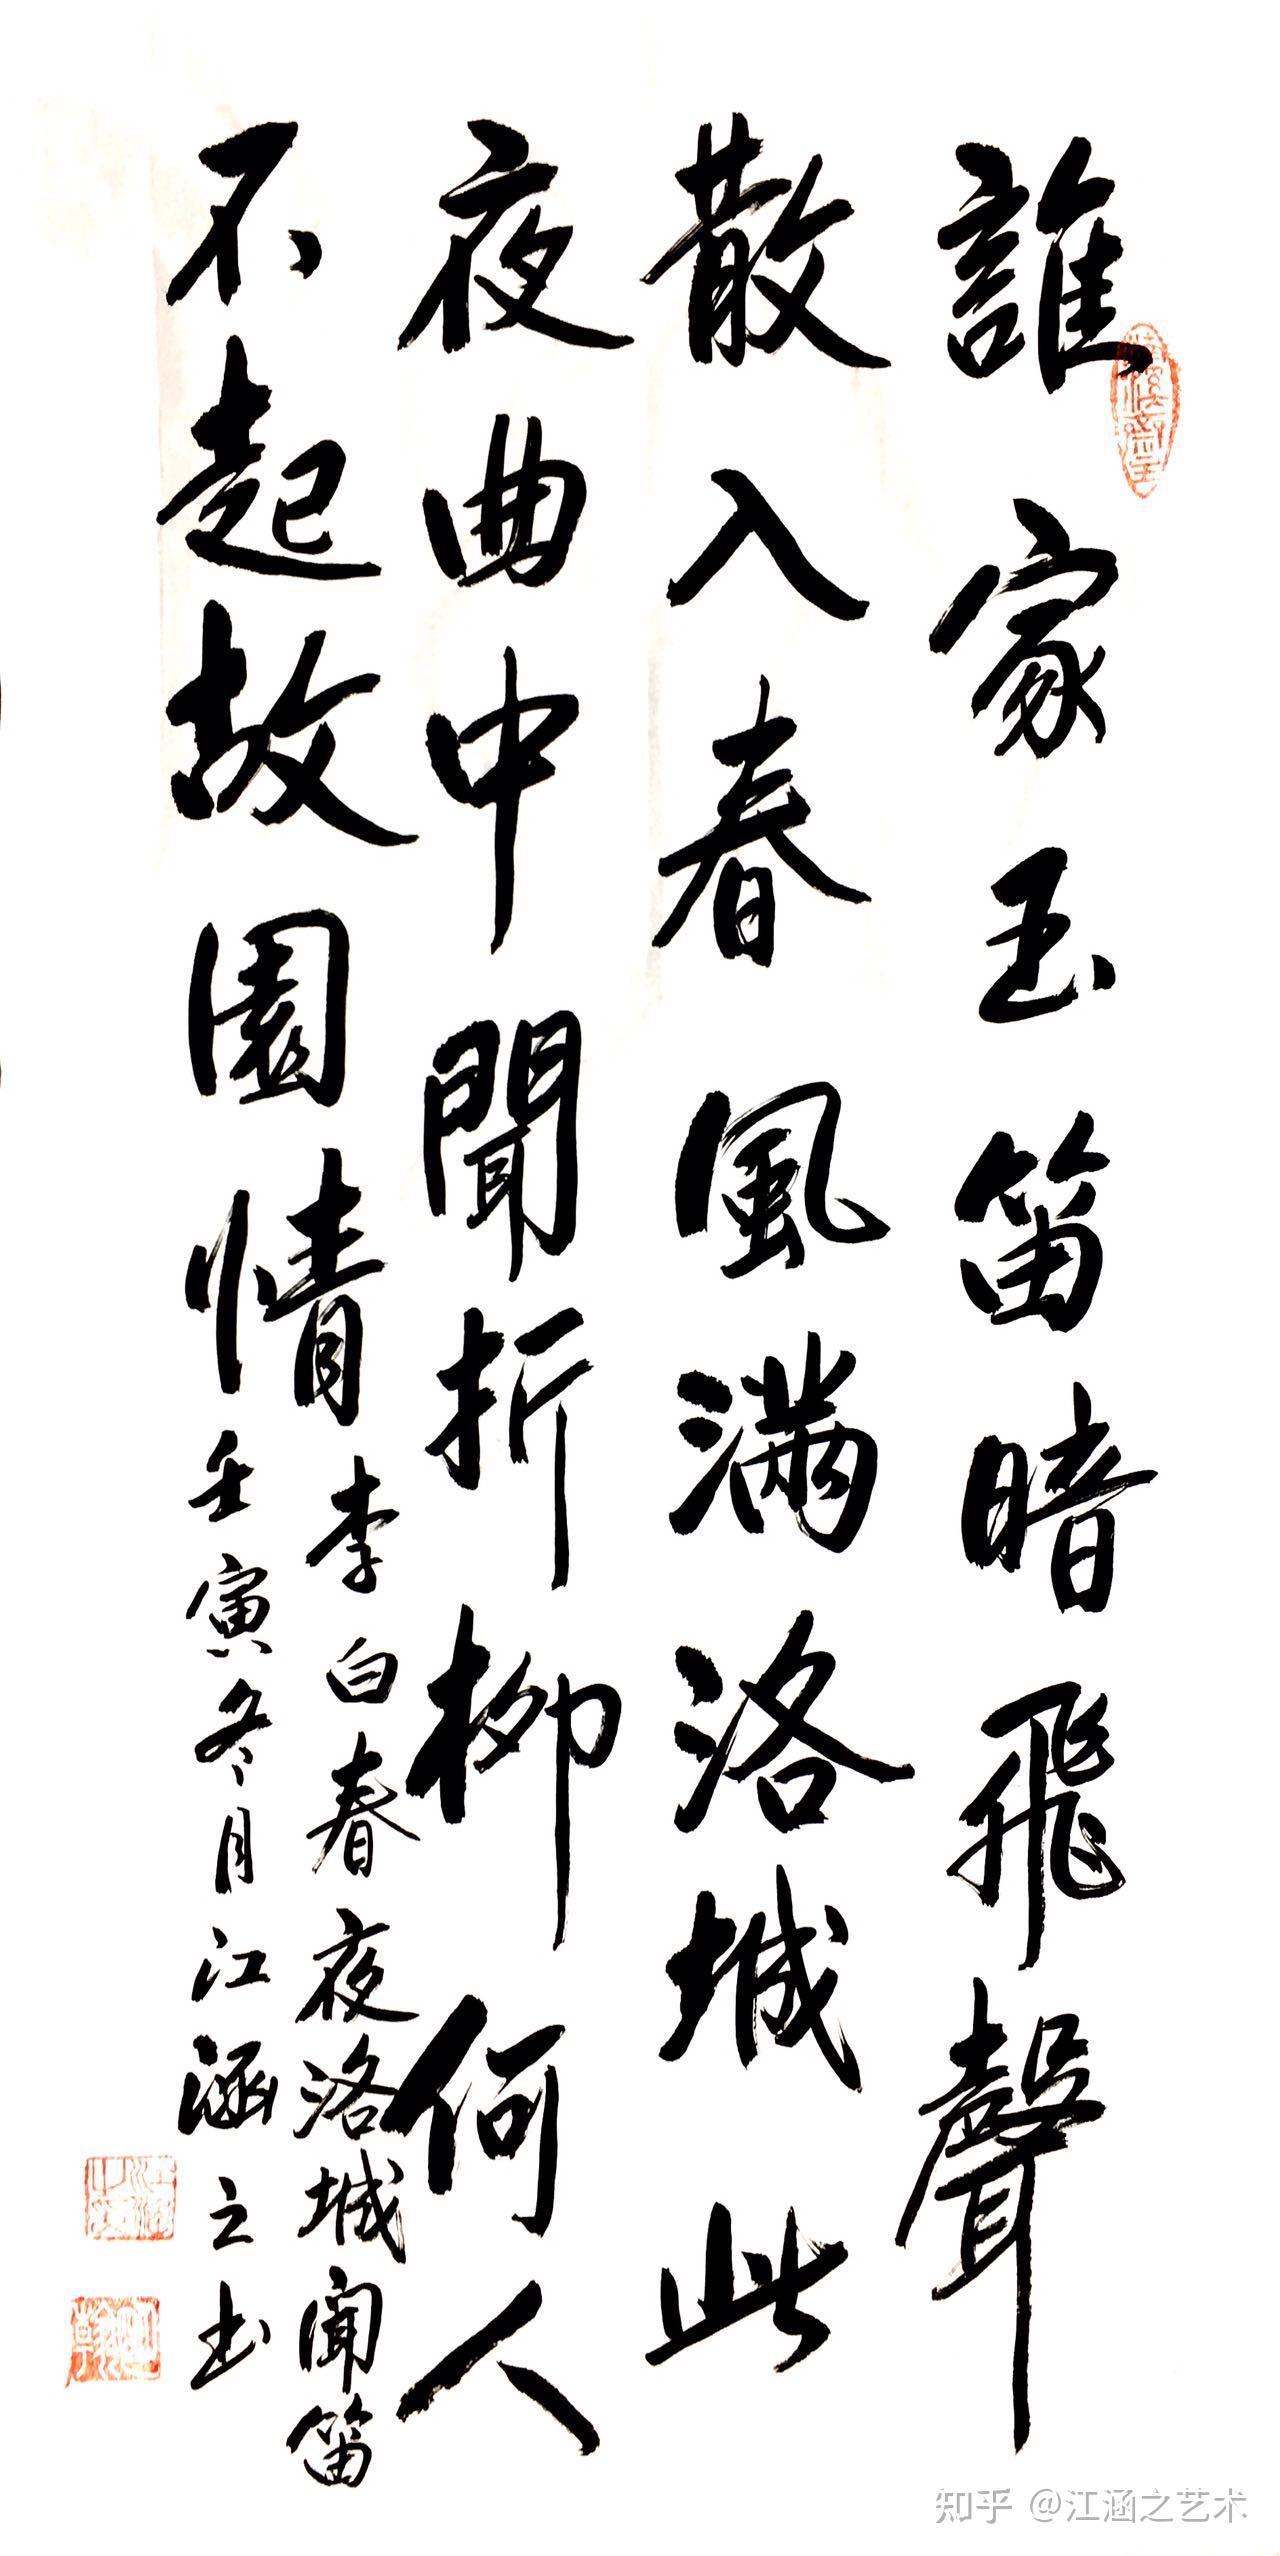 誰家玉笛暗飛聲
散入春風滿洛城此
夜曲中聞折柳何人
不起故園情
李白春夜洛城聞笛
壬寅冬月江涵之书
知乎 @江涵之艺术